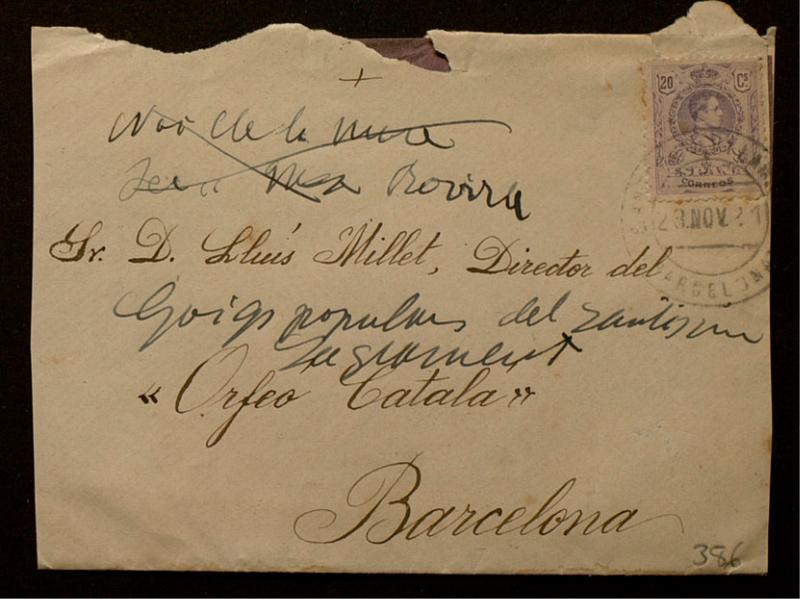 20 Cs
CORREOS
NOV 21
BARCELONA
de la mare
Rovira
Sr. D. Lluís Millet, Director del
Goigs populars del Santissim
Sagrament
«Orfeo Catala»
Barcelona
386